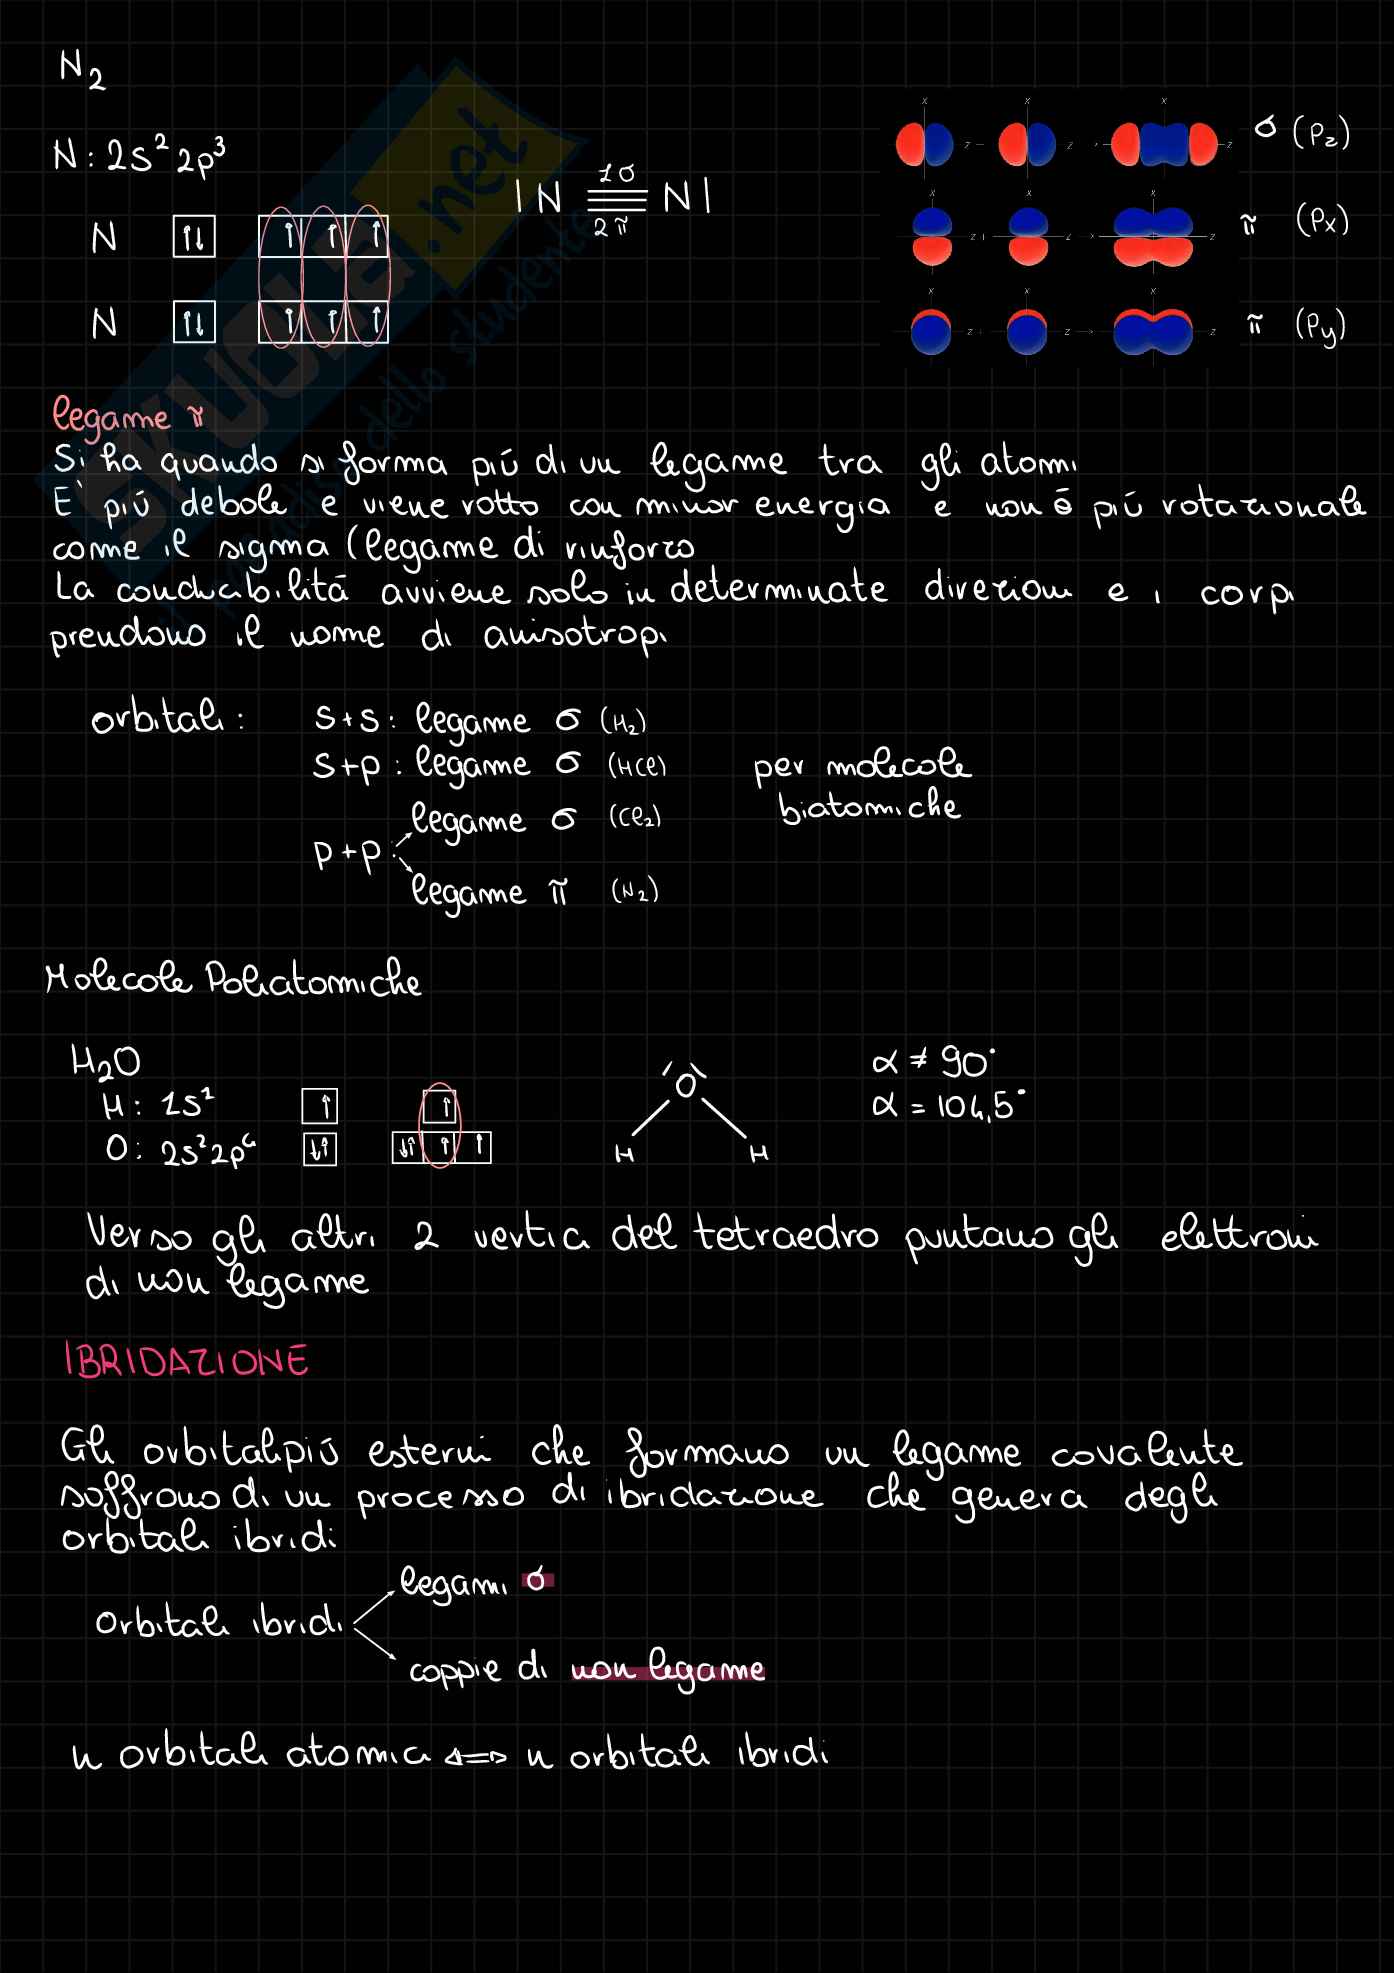 N2
N: 2s² 2p³
N ↑↓ ↑ ↑ ↑
N ↑↓ ↑ ↑ ↑
1 σ
|N ≡ N|
2 π
x x x
z z z
σ (Pz)
x x x
z z z
π (Px)
x x x
z z z
π (Py)
SKUOLA.net
dello studente
legame π
Si ha quando si forma piú di un legame tra gli atomi
E' piú debole e viene rotto con minor energia e non é piú rotazionale
come il sigma (legame di rinforzo
La conducibilitá avviene solo in determinate direzioni e i corpi
prendono il nome di anisotropi
orbitali: s+s: legame σ (H2)
s+p: legame σ (HCl)
per molecole
biatomiche
legame σ (Cl2)
p+p:
legame π (N2)
Molecole Poliatomiche
H2O
α ≠ 90°
H: 1s¹ ↑ ↑
O
α = 104,5°
O: 2s² 2p⁴ ↓↑ ↓↑ ↑ ↑
H H
Verso gli altri 2 vertici del tetraedro puntano gli elettroni
di non legame
IBRIDAZIONE
Gli orbitali piú esterni che formano un legame covalente
soffrono di un processo di ibridazione che genera degli
orbitali ibridi
legami σ
orbitali ibridi
coppie di non legame
n orbitali atomici ⇔ n orbitali ibridi